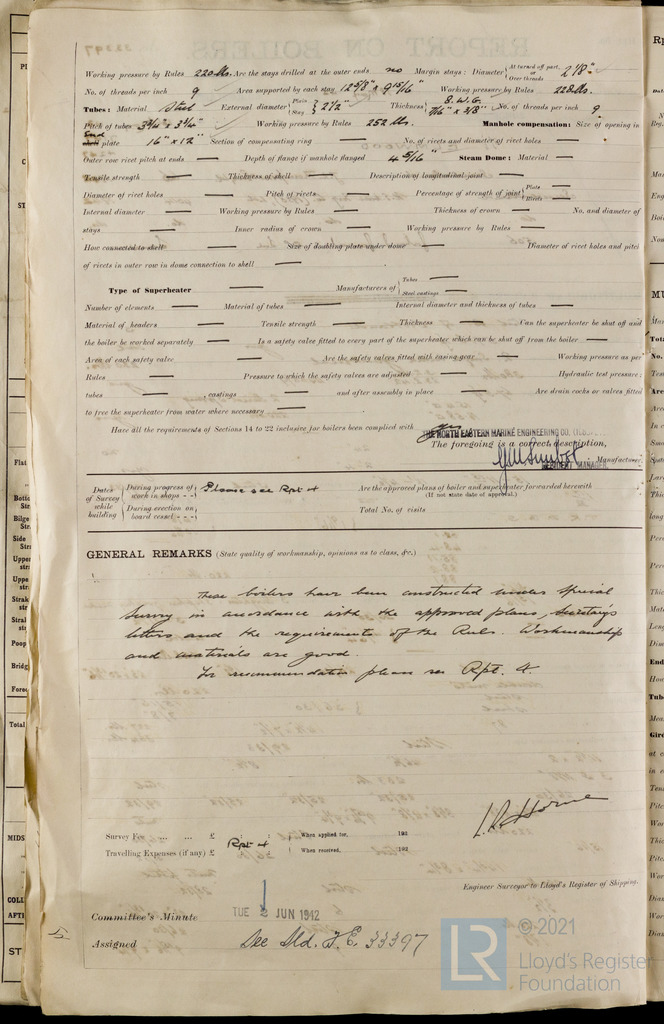 Working pressure by Rules 220 lbs. Are the stays drilled at the outer ends no Margin stays: Diameter { At turned off part, or Over threads 2 1/8"
No. of threads per inch 9 Area supported by each stay 12 5/8" x 9 15/16" Working pressure by Rules 228 lbs.
Tubes: Material Steel External diameter { Plain Stay } 2 1/2" Thickness { 8. W.G. 7/16" x 3/8" No. of threads per inch 9
Pitch of tubes 3 3/4" x 3 3/4" Working pressure by Rules 252 lbs. Manhole compensation: Size of opening in
End shell plate 16" x 12" Section of compensating ring — No. of rivets and diameter of rivet holes —
Outer row rivet pitch at ends — Depth of flange if manhole flanged 4 5/16" Steam Dome: Material —
Tensile strength — Thickness of shell — Description of longitudinal joint —
Diameter of rivet holes — Pitch of rivets — Percentage of strength of joint { Plate — Rivets —
Internal diameter — Working pressure by Rules — Thickness of crown — No. and diameter of
stays — Inner radius of crown — Working pressure by Rules —
How connected to shell — Size of doubling plate under dome — Diameter of rivet holes and pitch
of rivets in outer row in dome connection to shell —
Type of Superheater — Manufacturers of { Tubes — Steel castings —
Number of elements — Material of tubes — Internal diameter and thickness of tubes —
Material of headers — Tensile strength — Thickness — Can the superheater be shut off and
the boiler be worked separately — Is a safety valve fitted to every part of the superheater which can be shut off from the boiler —
Area of each safety valve — Are the safety valves fitted with easing gear — Working pressure as per
Rules — Pressure to which the safety valves are adjusted — Hydraulic test pressure:
tubes — , castings — and after assembly in place — Are drain cocks or valves fitted
to free the superheater from water where necessary —
Have all the requirements of Sections 14 to 22 inclusive for boilers been complied with yes
THE NORTH EASTERN MARINE ENGINEERING CO.
The foregoing is a correct description,
Manufacturer.
RESIDENT MANAGER.
Dates of Survey while building { During progress of work in shops - - Please see Rpt 4 Are the approved plans of boiler and superheater forwarded herewith (If not state date of approval.)
During erection on board vessel - - - Total No. of visits
GENERAL REMARKS (State quality of workmanship, opinions as to class, &c.)
These boilers have been constructed under special
survey in accordance with the approved plans, Secretary's
letters and the requirements of the Rules. Workmanship
and materials are good.
For recommendation please see Rpt. 4.
Survey Fee ... ... £ Rpt 4 : : When applied for, 193
Travelling Expenses (if any) £ : : When received, 192
L. R. Horne
Engineer Surveyor to Lloyd's Register of Shipping.
Committee's Minute TUE 2 JUN 1942
Assigned See Sld. F.E. 33397
© 2021
LR Lloyd's Register
Foundation